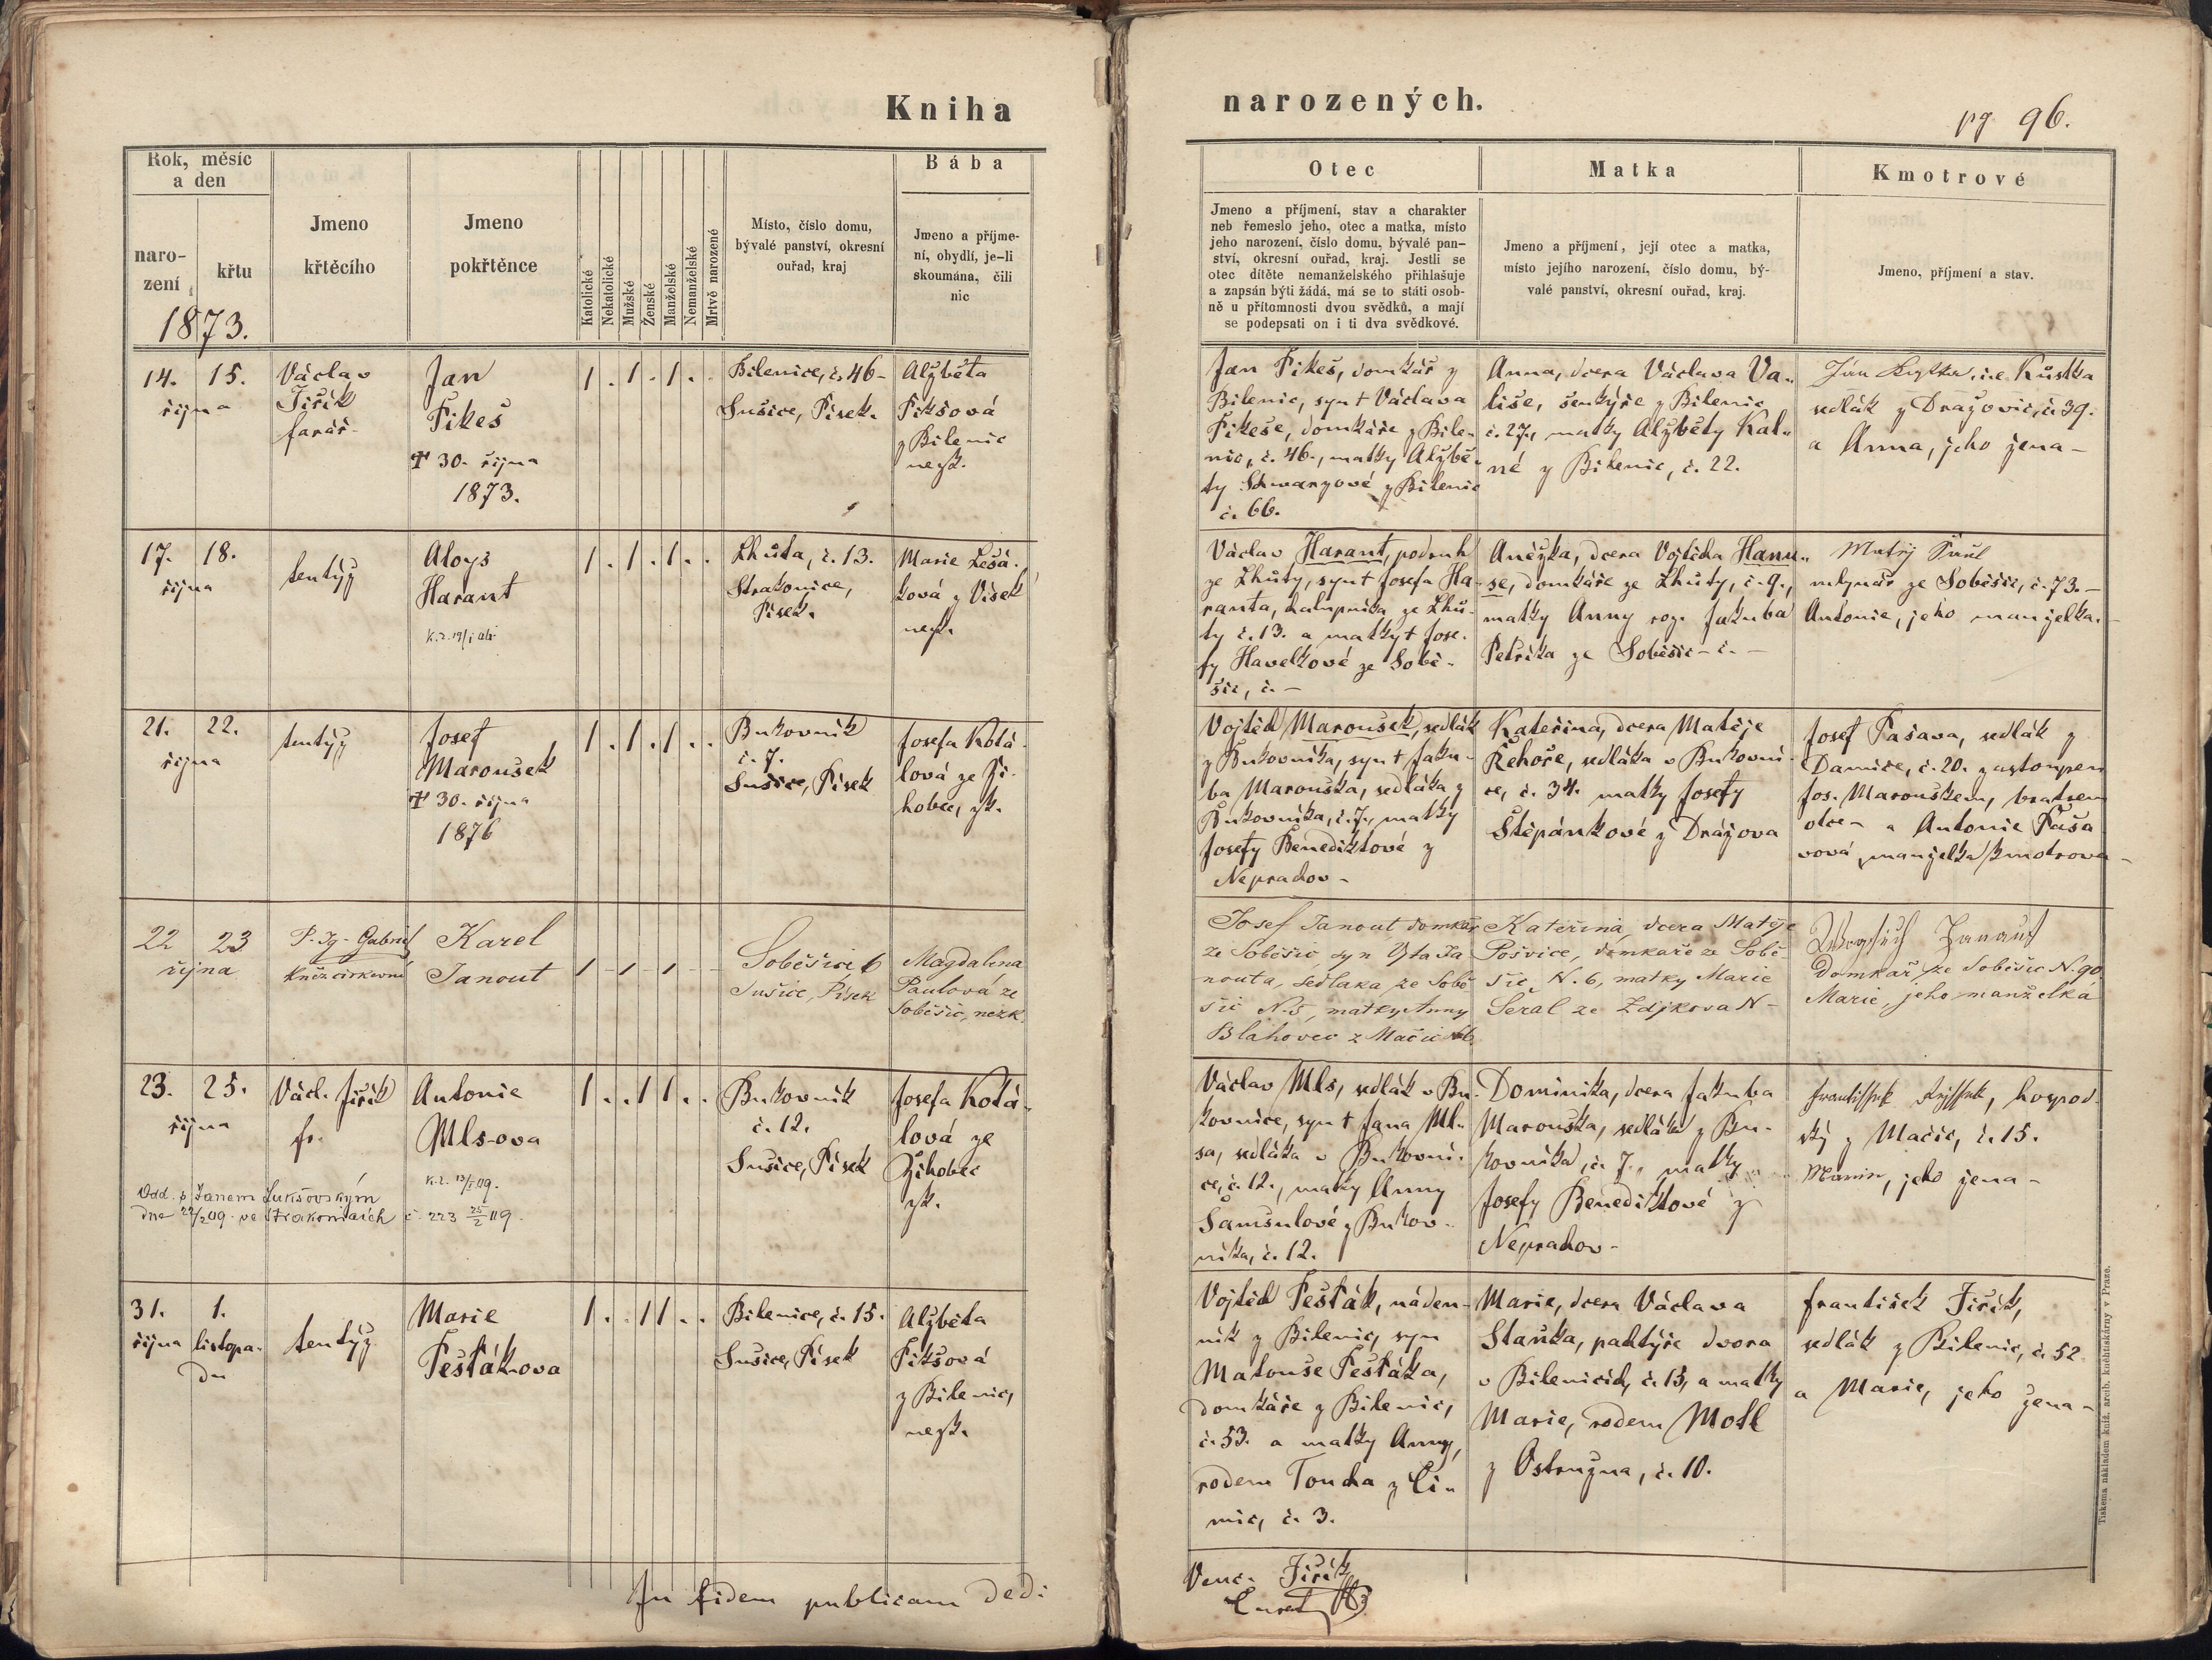 Kniha
narozených.
pg 96.
Rok, měsíc
a den
naro-
zení
křtu
1873.
Jmeno
křtěcího
Jmeno
pokřtěnce
Katolické
Nekatolické
Mužské
Ženské
Manželské
Nemanželské
Mrtvě narozené
Místo, číslo domu,
bývalé panství, okresní
ouřad, kraj
Bába
Jmeno a příjme-
ní, obydlí, je-li
skoumána, čili
nic
Otec
Jmeno a příjmení, stav a charakter
neb řemeslo jeho, otec a matka, místo
jeho narození, číslo domu, bývalé pan-
ství, okresní ouřad, kraj. Jestli se
otec dítěte nemanželského přihlašuje
a zapsán býti žádá, má se to státi osob-
ně u přítomnosti dvou svědků, a mají
se podepsati on i ti dva svědkové.
Matka
Jmeno a příjmení, její otec a matka,
místo jejího narození, číslo domu, bý-
valé panství, okresní ouřad, kraj.
Kmotrové
Jmeno, příjmení a stav.
14. 15.
října
Václav
Jiřík
farář
Jan
Fikeš
† 30. října
1873.
1 . 1 . 1 . .
Bilenice, č. 46-
Sušice, Písek.
Alžběta
Fikšová
z Bilenic
nezk.
Jan Fikeš, domkář z
Bilenic, syn † Václava
Fikeše, domkáře z Bile-
nic, č. 46., matky Alžbě-
ty Schwarzové z Bilenic
č. 66.
Anna, dcera Václava Va-
liše, šenkýře z Bilenic
č. 27., matky Alžběty Kal-
né z Bilenic, č. 22.
Jan i.e. Kůstka
sedlák z Dražovic, č. 39.
a Anna, jeho žena -
17. 18.
října
tentýž
Aloys
Harant
1 . 1 . 1 . .
Lhůta, č. 13.
Strakonice,
Písek.
Marie Lešá-
ková z Vísek
nezk.
Václav Harant, podruh
ze Lhůty, syn † Josefa Ha-
ranta, chalupníka ze Lhů-
ty č. 13. a matky † Jose-
fy Havelkové ze Sobě-
šic, č. -
Anežka, dcera Vojtěcha Hanu-
se, domkáře ze Lhůty, č. 9.,
matky Anny roz. Jakuba
Petříka ze Soběšic - č. -
Matěj
mlynář ze Soběšic, č. 73. -
Antonie, jeho manželka. -
21. 22.
října
tentýž
Josef
Maroušek
† 30. října
1876
1 . 1 . 1 . .
Bukovník
č. 7.
Sušice, Písek
Josefa Kolá-
lová ze Ži-
hobec, zk.
Vojtěch Maroušek, sedlák
z Bukovníka, syn † Jaku-
ba Marouška, sedláka z
Bukovníka, č. 7., matky
Josefy Benediktové z
Neprachov -
Kateřina, dcera Matěje
Řehoře, sedláka v Bukovní-
ce, č. 34. matky Josefy
Štěpánkové z Drážova
Josef Pašava, sedlák z
Damíče, č. 20. zastoupen
Jos. Marouškem, bratrem
otce - a Antonie Paša-
vová, manželka kmotrova -
22 23
října
P. Ig. Gabriel
Kněz církevní
Karel
Janout
1 - 1 - 1 - -
Soběšice 6
Sušice, Písek
Magdalena
Paulová ze
Soběšic, nezk.
Josef Janout domkář
ze Soběšic syn Ja-
nouta, sedlaka ze Sobě-
šic N. 5, matky Anny
Blahovec z Mačic
Kateřina, dcera Matěje
Pošvice, domkaře ze Sobě-
šic, N. 6, matky Marie
ze Zdikova N -
Janaut
Domkař ze Soběšic N. 90
Marie, jeho manželka
23. 25.
října
Václ. Jiřík
fr.
Antonie
Mls-ova
1 . . 1 1 . .
Odd. s Janem Lukšovským
dne 22/2 09. ve Strakonicích č. 223 25/2 09.
Bukovník
č. 12.
Sušice, Písek
Josefa Kolá-
lová ze
Žihobec
zk.
Václav Mls, sedlák v Bu-
kovníce, syn † Jana Ml-
sa, sedláka v Bukovní-
ce, č. 12., matky Anny
Samsulové z Bukov-
níka, č. 12.
Dominika, dcera Jakuba
Marouška, sedláka z Bu-
kovníka, č. 7., matky
Josefy Benediktové z
Neprachov -
hospod-
ský z Mačic, č. 15.
jeho žena -
31. 1.
října listopa-
du
tentýž
Marie
Fešťák-ova
1 . . 1 1 . .
Bilenice, č. 15.
Sušice, Písek
Alžběta
Fikšová
z Bilenic,
nezk.
Vojtěch Fešťák, náden-
ník z Bilenic, syn
Matouše Fešťáka,
domkáře z Bilenic,
č. 53. a matky Anny,
rodem Toucha z Či-
mic, č. 3.
Marie, dcera Václava
Staňka, pachtýře dvora
v Bilenicích, č. 15, a matky
Marie, rodem Motl
z Ostružna, č. 10.
František Jiřík,
sedlák z Bilenic, č. 52
a Marie, jeho žena -
In fidem publicam dedi
Venc. Jiřík
Curat
Tiskem a nákladem kníž. arcib. knihtiskárny v Praze.